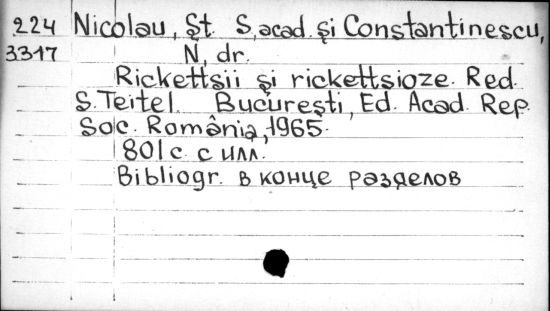 224 Nicolau, Şt. S, acad. şi Constantinescu,
3317 N, dr.
Rickettsii şi rickettsioze. Red.
S. Teitel. Bucureşti, Ed. Acad. Rep.
Soc. România, 1965.
801 c. с илл.
Bibliogr. в конце разделов